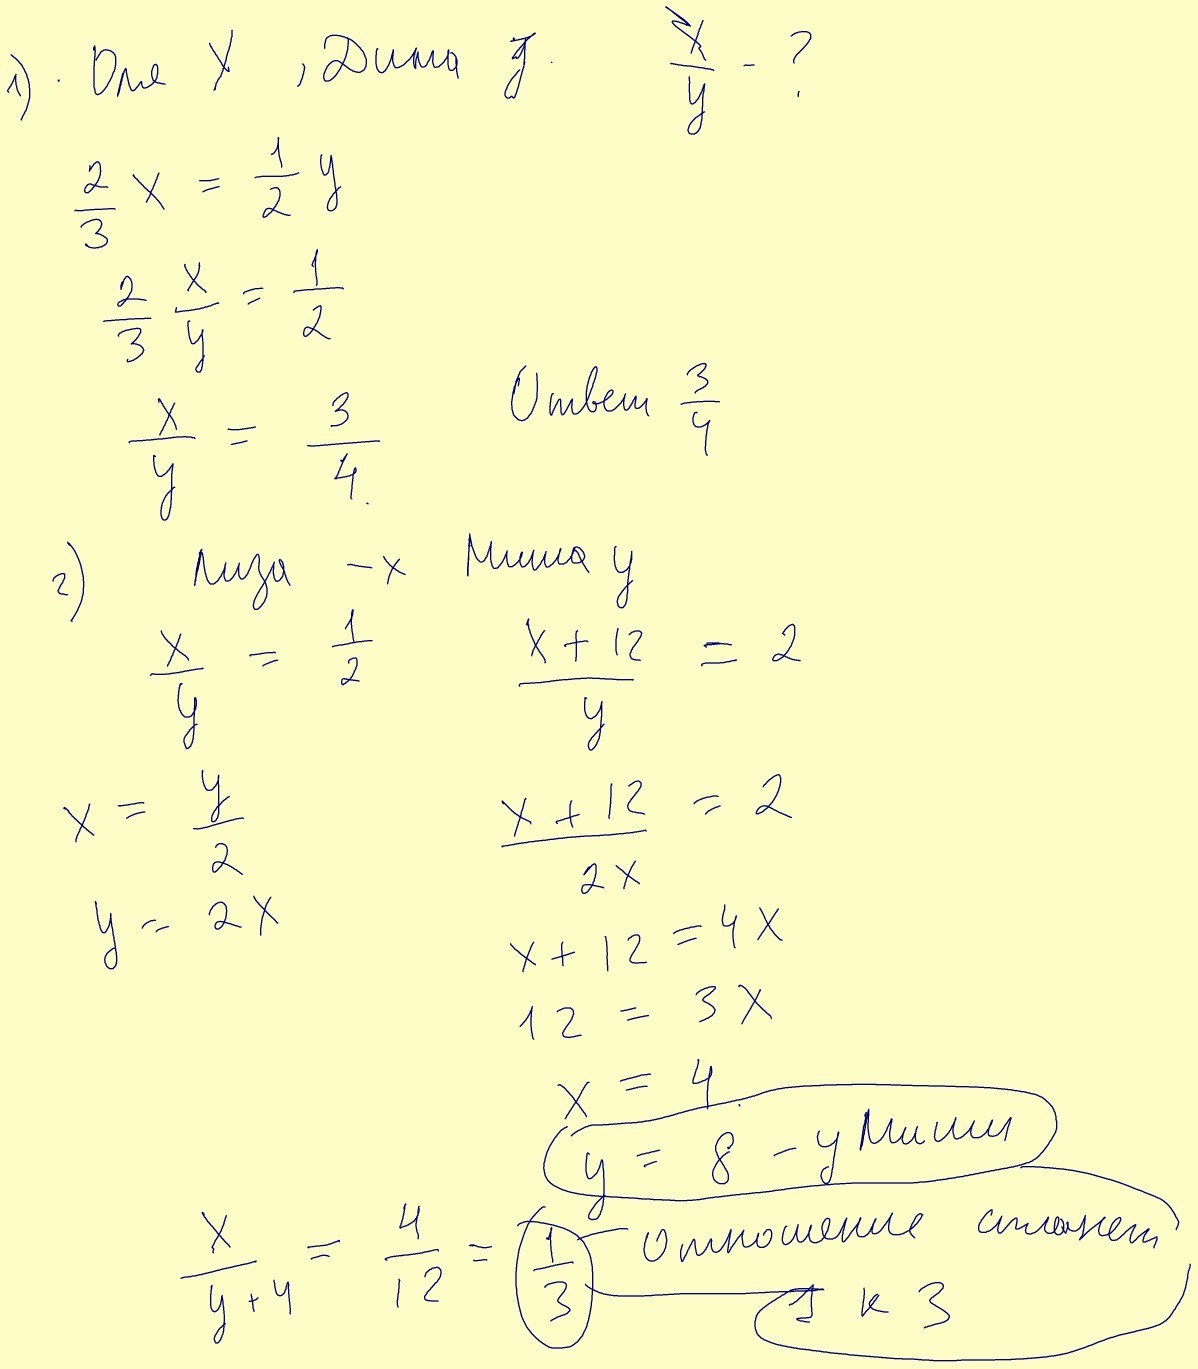 1) Оля X , Дима y. x/y - ?
2/3 x = 1/2 y
2/3 x/y = 1/2
x/y = 3/4. Ответ 3/4
2) Лиза - x Миша y
x/y = 1/2 (x + 12)/y = 2
x = y/2 (x + 12)/2x = 2
y = 2x
x + 12 = 4x
12 = 3x
x = 4
y = 8 - у Миши
x/(y+4) = 4/12 = 1/3 - отношение станет
1 к 3